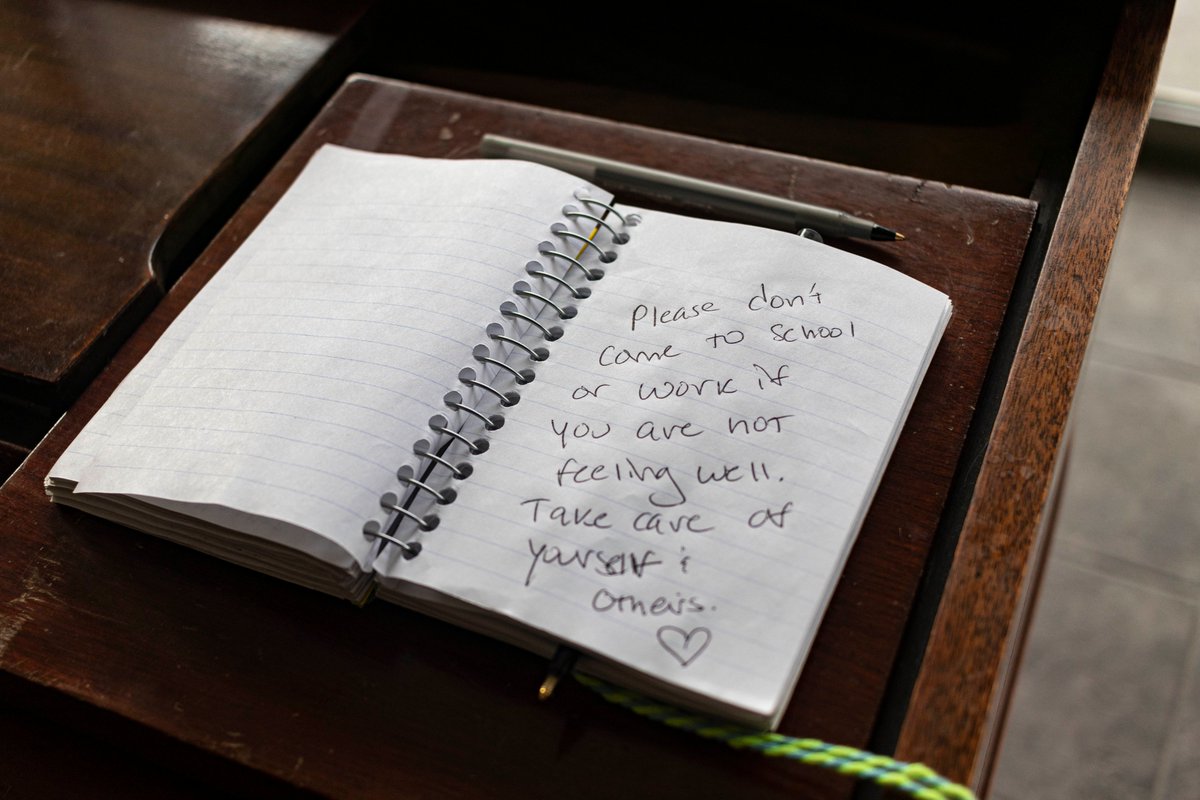 Please don't
come to School
or work if
you are not
feeling well.
Take care of
yourself &
others.